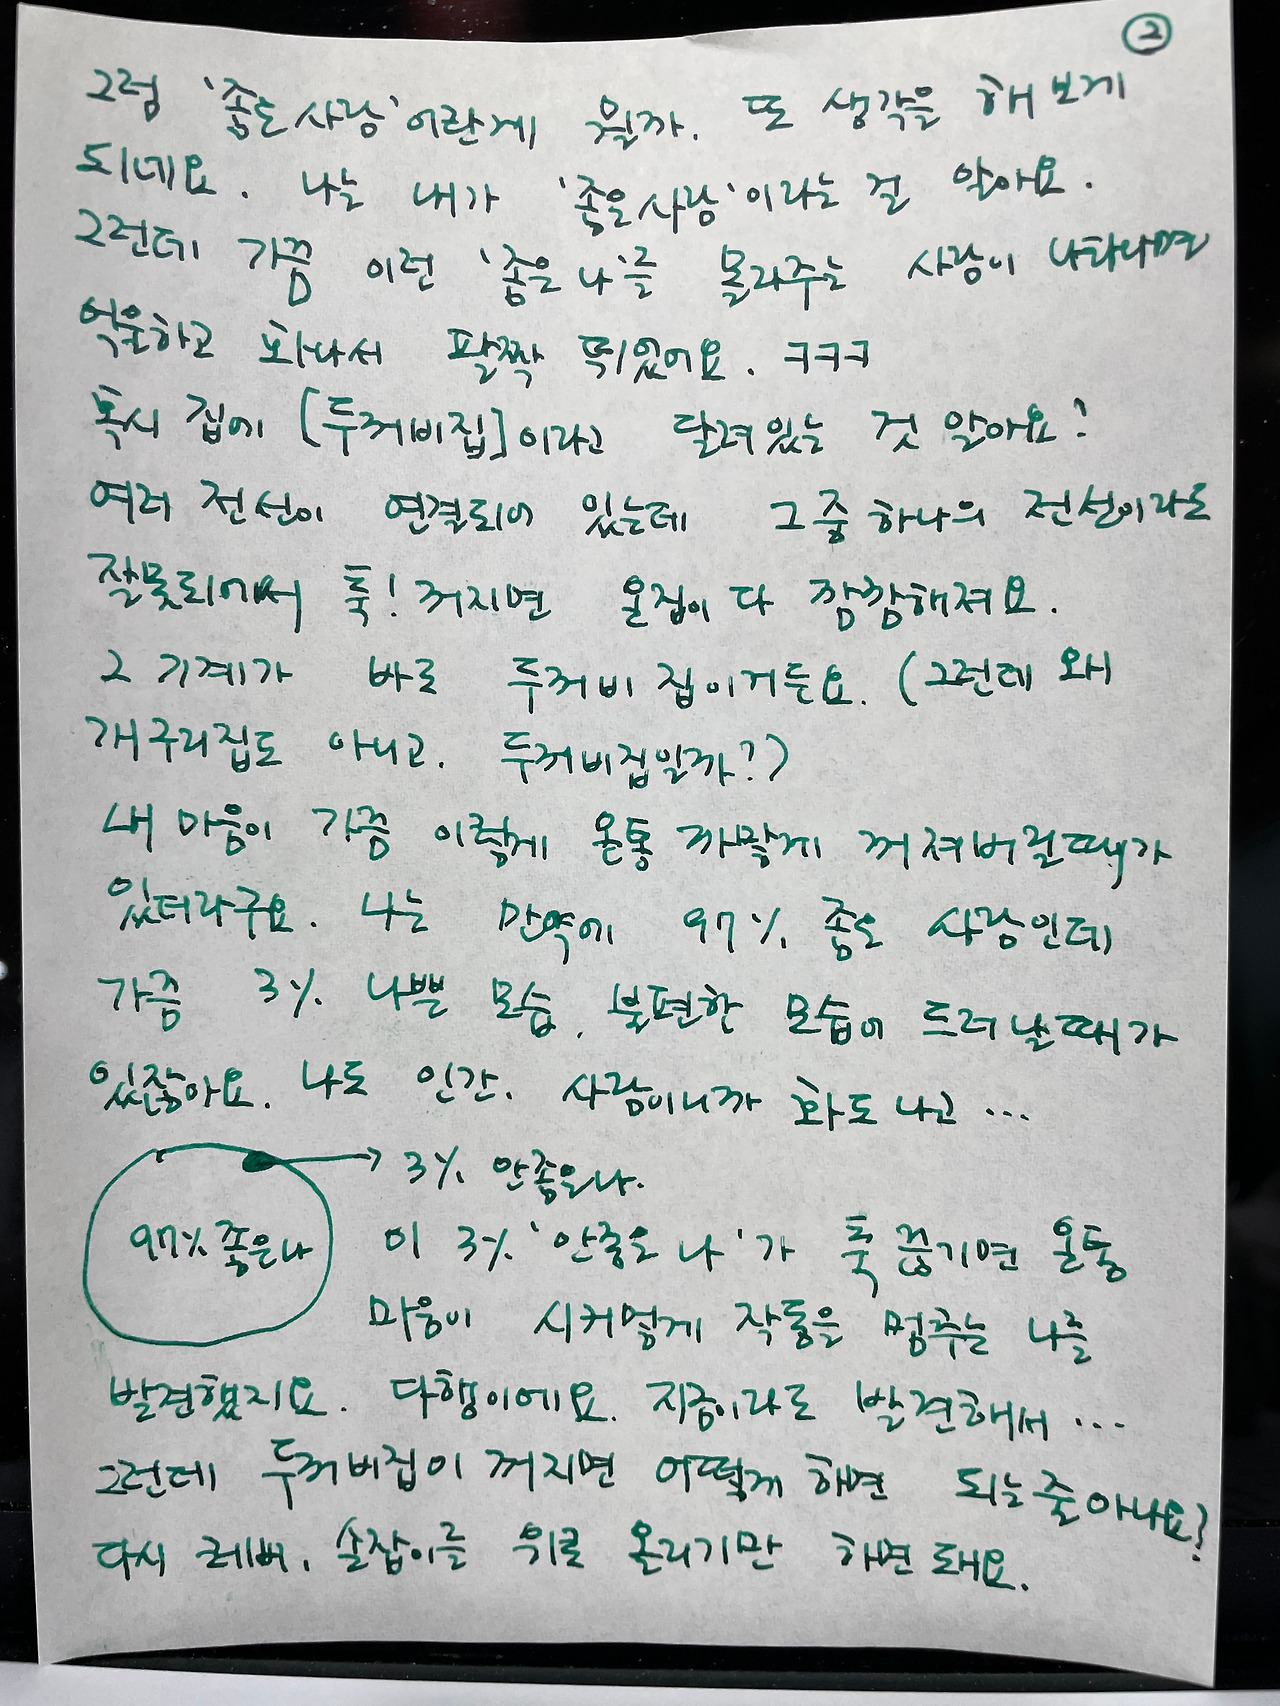 ②
그럼 '좋은 사람'이란게 뭘까. 또 생각을 해 보게
되네요. 나는 내가 '좋은 사람'이라는 걸 알아요.
그런데 가끔 이런 '좋은 나'를 몰라주는 사람이 나타나면
억울하고 화나서 팔짝 뛰었어요. ㅋㅋㅋ
혹시 집에 [두꺼비집]이라고 달려있는 것 알아요?
여러 전선이 연결되어 있는데 그 중 하나의 전선이라도
잘못되어서 툭! 꺼지면 온집이 다 깜깜해져요.
그 기계가 바로 두꺼비 집이거든요. (그런데 왜
개구리집도 아니고. 두꺼비집일까?)
내 마음이 가끔 이렇게 온통 까맣게 꺼져버릴때가
있더라구요. 나는 만약에 97% 좋은 사람인데
가끔 3% 나쁜 모습, 불편한 모습이 드러날때가
있잖아요. 나도 인간. 사람이니까 화도 나고 …
→ 3% 안좋은나.
97% 좋은나 이 3% '안좋은 나'가 툭 끊기면 온통
마음이 시커멓게 작동을 멈추는 나를
발견했지요. 다행이에요. 지금이라도 발견해서 …
그런데 두꺼비집이 꺼지면 어떻게 하면 되는줄 아나요?
다시 레버, 손잡이를 위로 올리기만 하면 돼요.